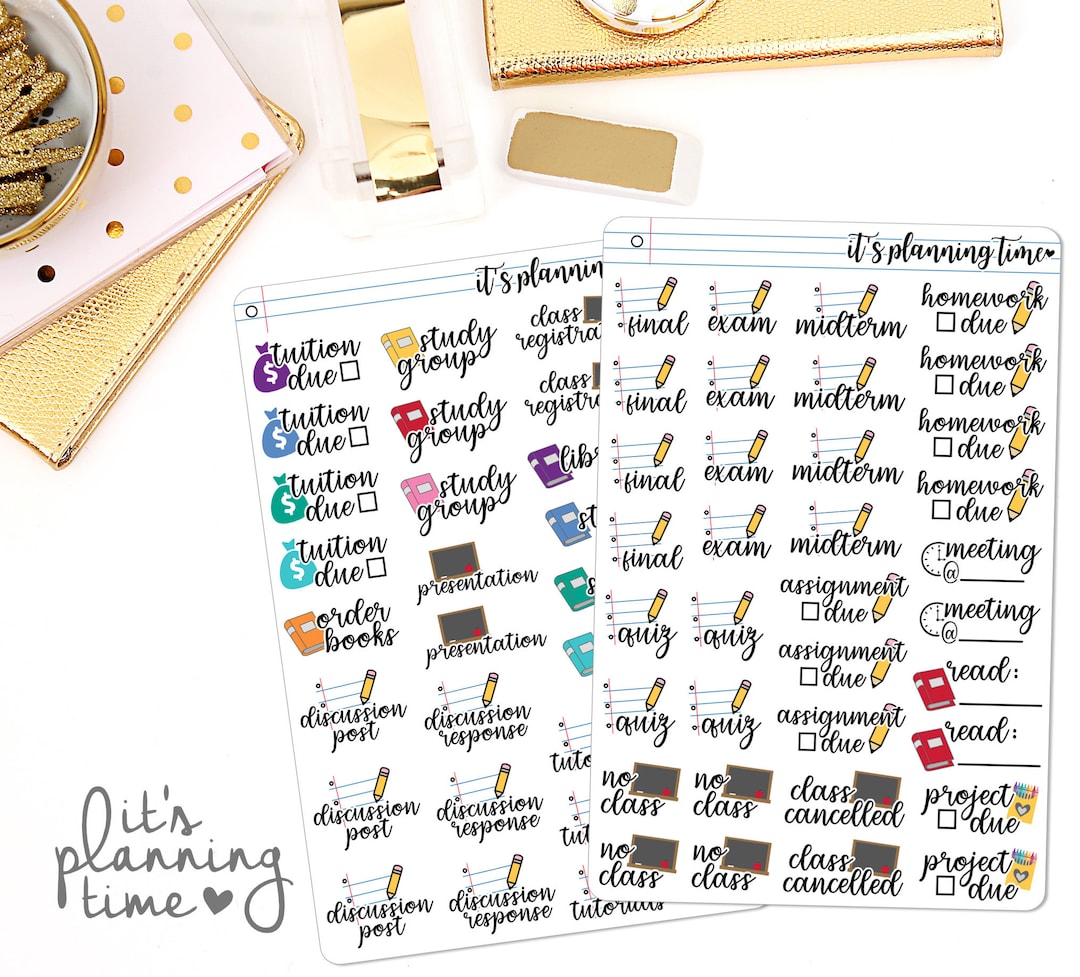 it's planning
tuition
due
tuition
due
tuition
due
tuition
due
order
books
study
group
study
group
study
group
presentation
presentation
class
class
discussion
post
discussion
post
discussion
post
discussion
response
discussion
response
discussion
response
tutorials
it's planning time
final
exam
midterm
homework
due
final
exam
midterm
homework
due
final
exam
midterm
homework
due
final
exam
midterm
homework
due
quiz
quiz
assignment
due
meeting
@
quiz
quiz
assignment
due
meeting
@
assignment
due
read:
read:
no
class
no
class
class
cancelled
project
due
no
class
no
class
class
cancelled
project
due
it's
planning
time